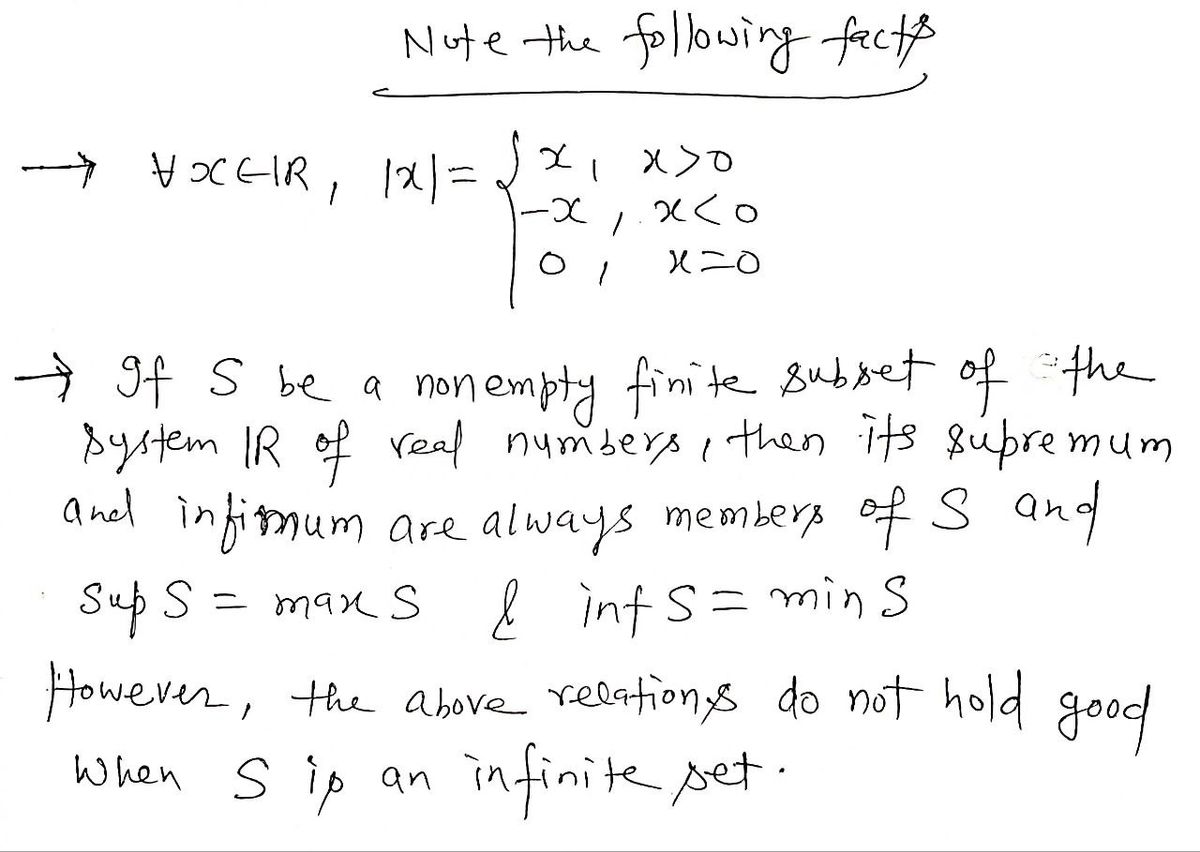 Note the following facts
→ ∀ x∈ℝ, |x| = { x, x>0
-x, x<0
0, x=0
→ If S be a nonempty finite subset of the
system ℝ of real numbers, then its supremum
and infimum are always members of S and
Sup S = max S & inf S = min S
However, the above relations do not hold good
when S is an infinite set.